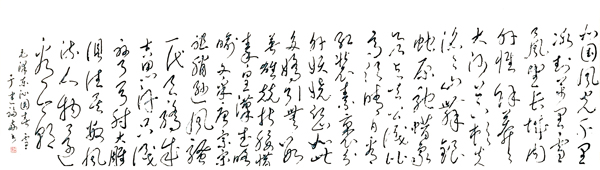 北国风光千里
冰封万里雪
飘望长城内
外惟余莽莽
大河上下顿失
滔滔山舞银
蛇原驰蜡象
欲与天公试比
高须晴日看
红装素裹分
外妖娆江山如此
多娇引无数
英雄竞折腰惜
秦皇汉武略
输文采唐宗宋
祖稍逊风骚
一代天骄成
吉思汗只识
弯弓射大雕
俱往矣数风
流人物还
看今朝
毛泽东沁园春雪